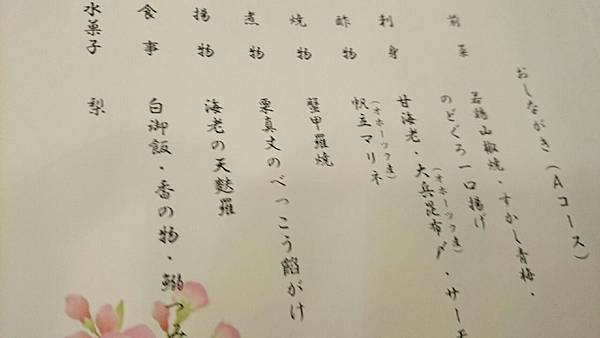 おしながき(Aコース)
前菜 若鶏山椒焼・すかし青梅・
のどぐろ一口揚げ
刺身 甘海老・大兵昆布〆・サーモ
(オホーツク産)
酢物 帆立マリネ
(オホーツク産)
焼物 蟹甲羅焼
煮物 栗真丈のべっこう餡がけ
揚物 海老の天麩羅
食事 白御飯・香の物・鰯つみ
水菓子 梨